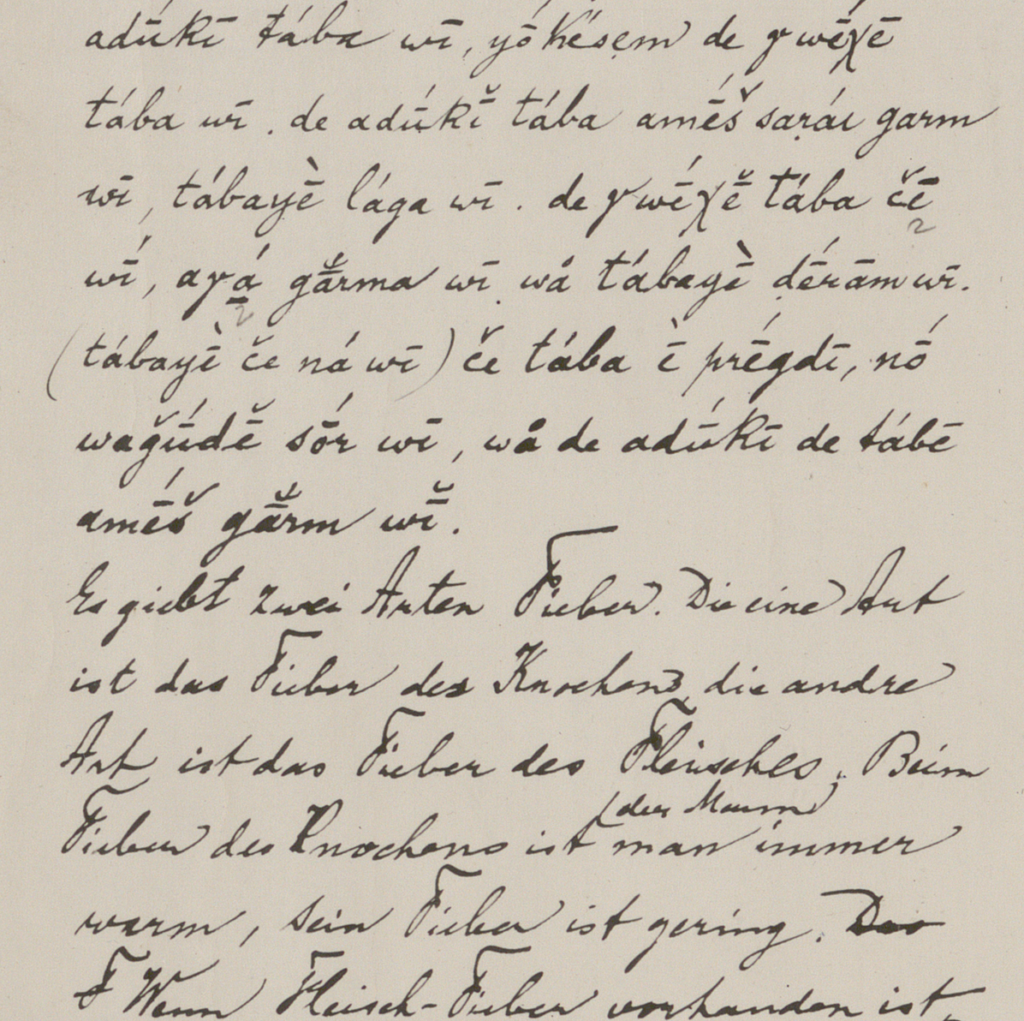 adū́kī tába wī, yṓ kḗsẹm de γwḗχē
tába wī. de adū́kī̆ tába amḗš sarái garm
wī, tábayḕ lága wī. de γwḗχē̆ tába čē
wī́, aγá gā̆rma wī wå tábayḕ ḍērām wī.
(tábayḕ če ná wī) če tába ḕ prḗgdī, nṓ
wağū́dē̆ sṓr wī, wå de adū́kī de tábē
amḗš gā̆rm wī̆.
Es giebt zwei Arten Fieber. Die eine Art
ist das Fieber des Knochens, die andre
Art ist das Fieber des Fleisches. Beim
(der Mann)
Fieber des Knochens ist man immer
warm, sein Fieber ist gering. Das
F Wenn Fleisch-Fieber vorhanden ist,